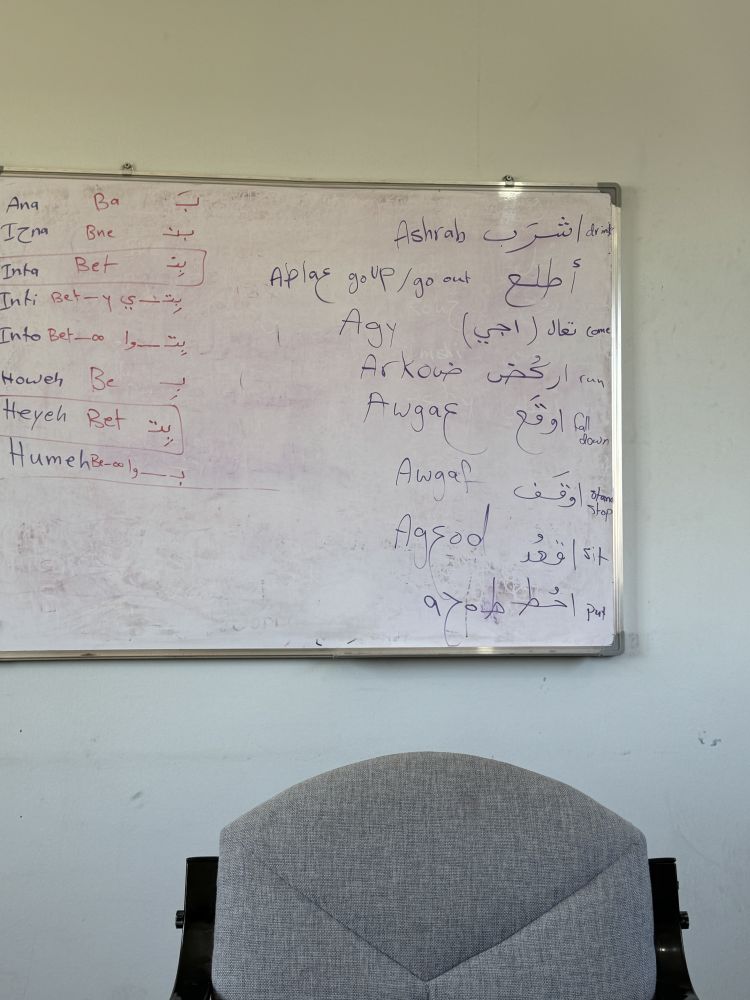 Ana Ba بَـ
Iحna Bne بنـ
Inta Bet بِتـ
Inti Bet-y بِتـــي
Into Bet-oo بِتـــوا
Howeh Be بِـ
Heyeh Bet بِتـ
Humeh Be-oo بـــوا
Ashrab اشرَب drink
Aطlaع go up/go out أطلع
Agy تعال (اجي) come
Arkouض اركُض run
Awgaع اوقَع fall down
Awgaf اوقَف stand stop
Agعod اقعُد sit
aحoط احُط put